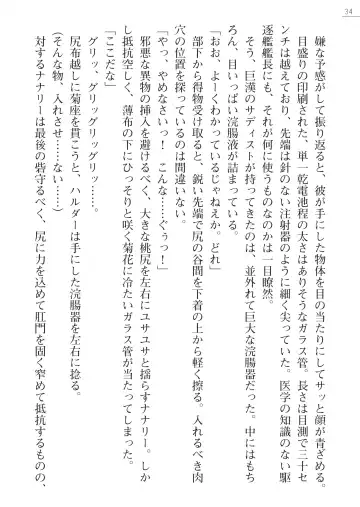 34
嫌な予感がして振り返ると、彼が手にした物体を目の当たりにしてサッと顔が青ざめる。
目盛りの印刷された、単一乾電池程の太さはありそうなガラス管。長さは目測で三十セ
ンチは越えており、先端は針のない注射器のように細く尖っていた。医学の知識のない駆
逐艦艦長にも、それが何に使うものなのかは一目瞭然。
そう、巨漢のサディストが持ってきたのは、並外れて巨大な浣腸器だった。中にはもち
ろん、目いっぱい浣腸液が詰まっている。
「おお、よくわかっているじゃねえか。どれ」
部下から得物を受け取ると、鋭い先端で尻の谷間を下着の上から軽く擦る。入れるべき肉
穴の位置を探っているのは間違いない。
「やっ、やめなさいっ！　こんな……ぐぅっ！」
邪悪な異物の挿入を避けるべく、大きな桃尻を左右にユサユサと揺らすナナリー。しか
し抵抗空しく、薄布の下にひっそりと咲く菊花に冷たいガラス管が当たってしまった。
「ここだな」
グリッ、グリッグリッグリッ……。
尻布越しに菊座を貫こうと、ハルダーは手にした浣腸器を左右に捻る。
（そんな物、入れさせ……ない）
対するナナリーは最後の砦守るべく、尻に力を込めて肛門を固く窄めて抵抗するものの、